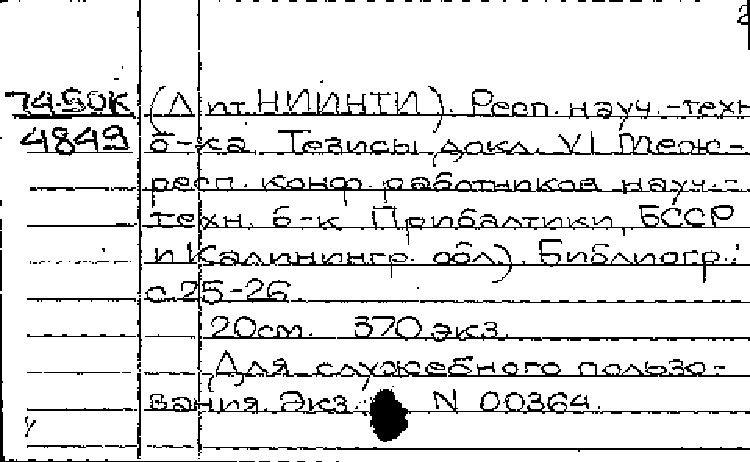 74-50К (Лит.НИИНТИ). Респ. науч.-техн
4849 б-ка. Тезисы докл. VI Меж-
респ. конф. работников науч.-
техн. б-к Прибалтики, БССР
и Калинингр. обл.). Библиогр.:
с.25-26.
20см. 370 экз.
Для служебного пользо-
вания. Экз. N 00364.